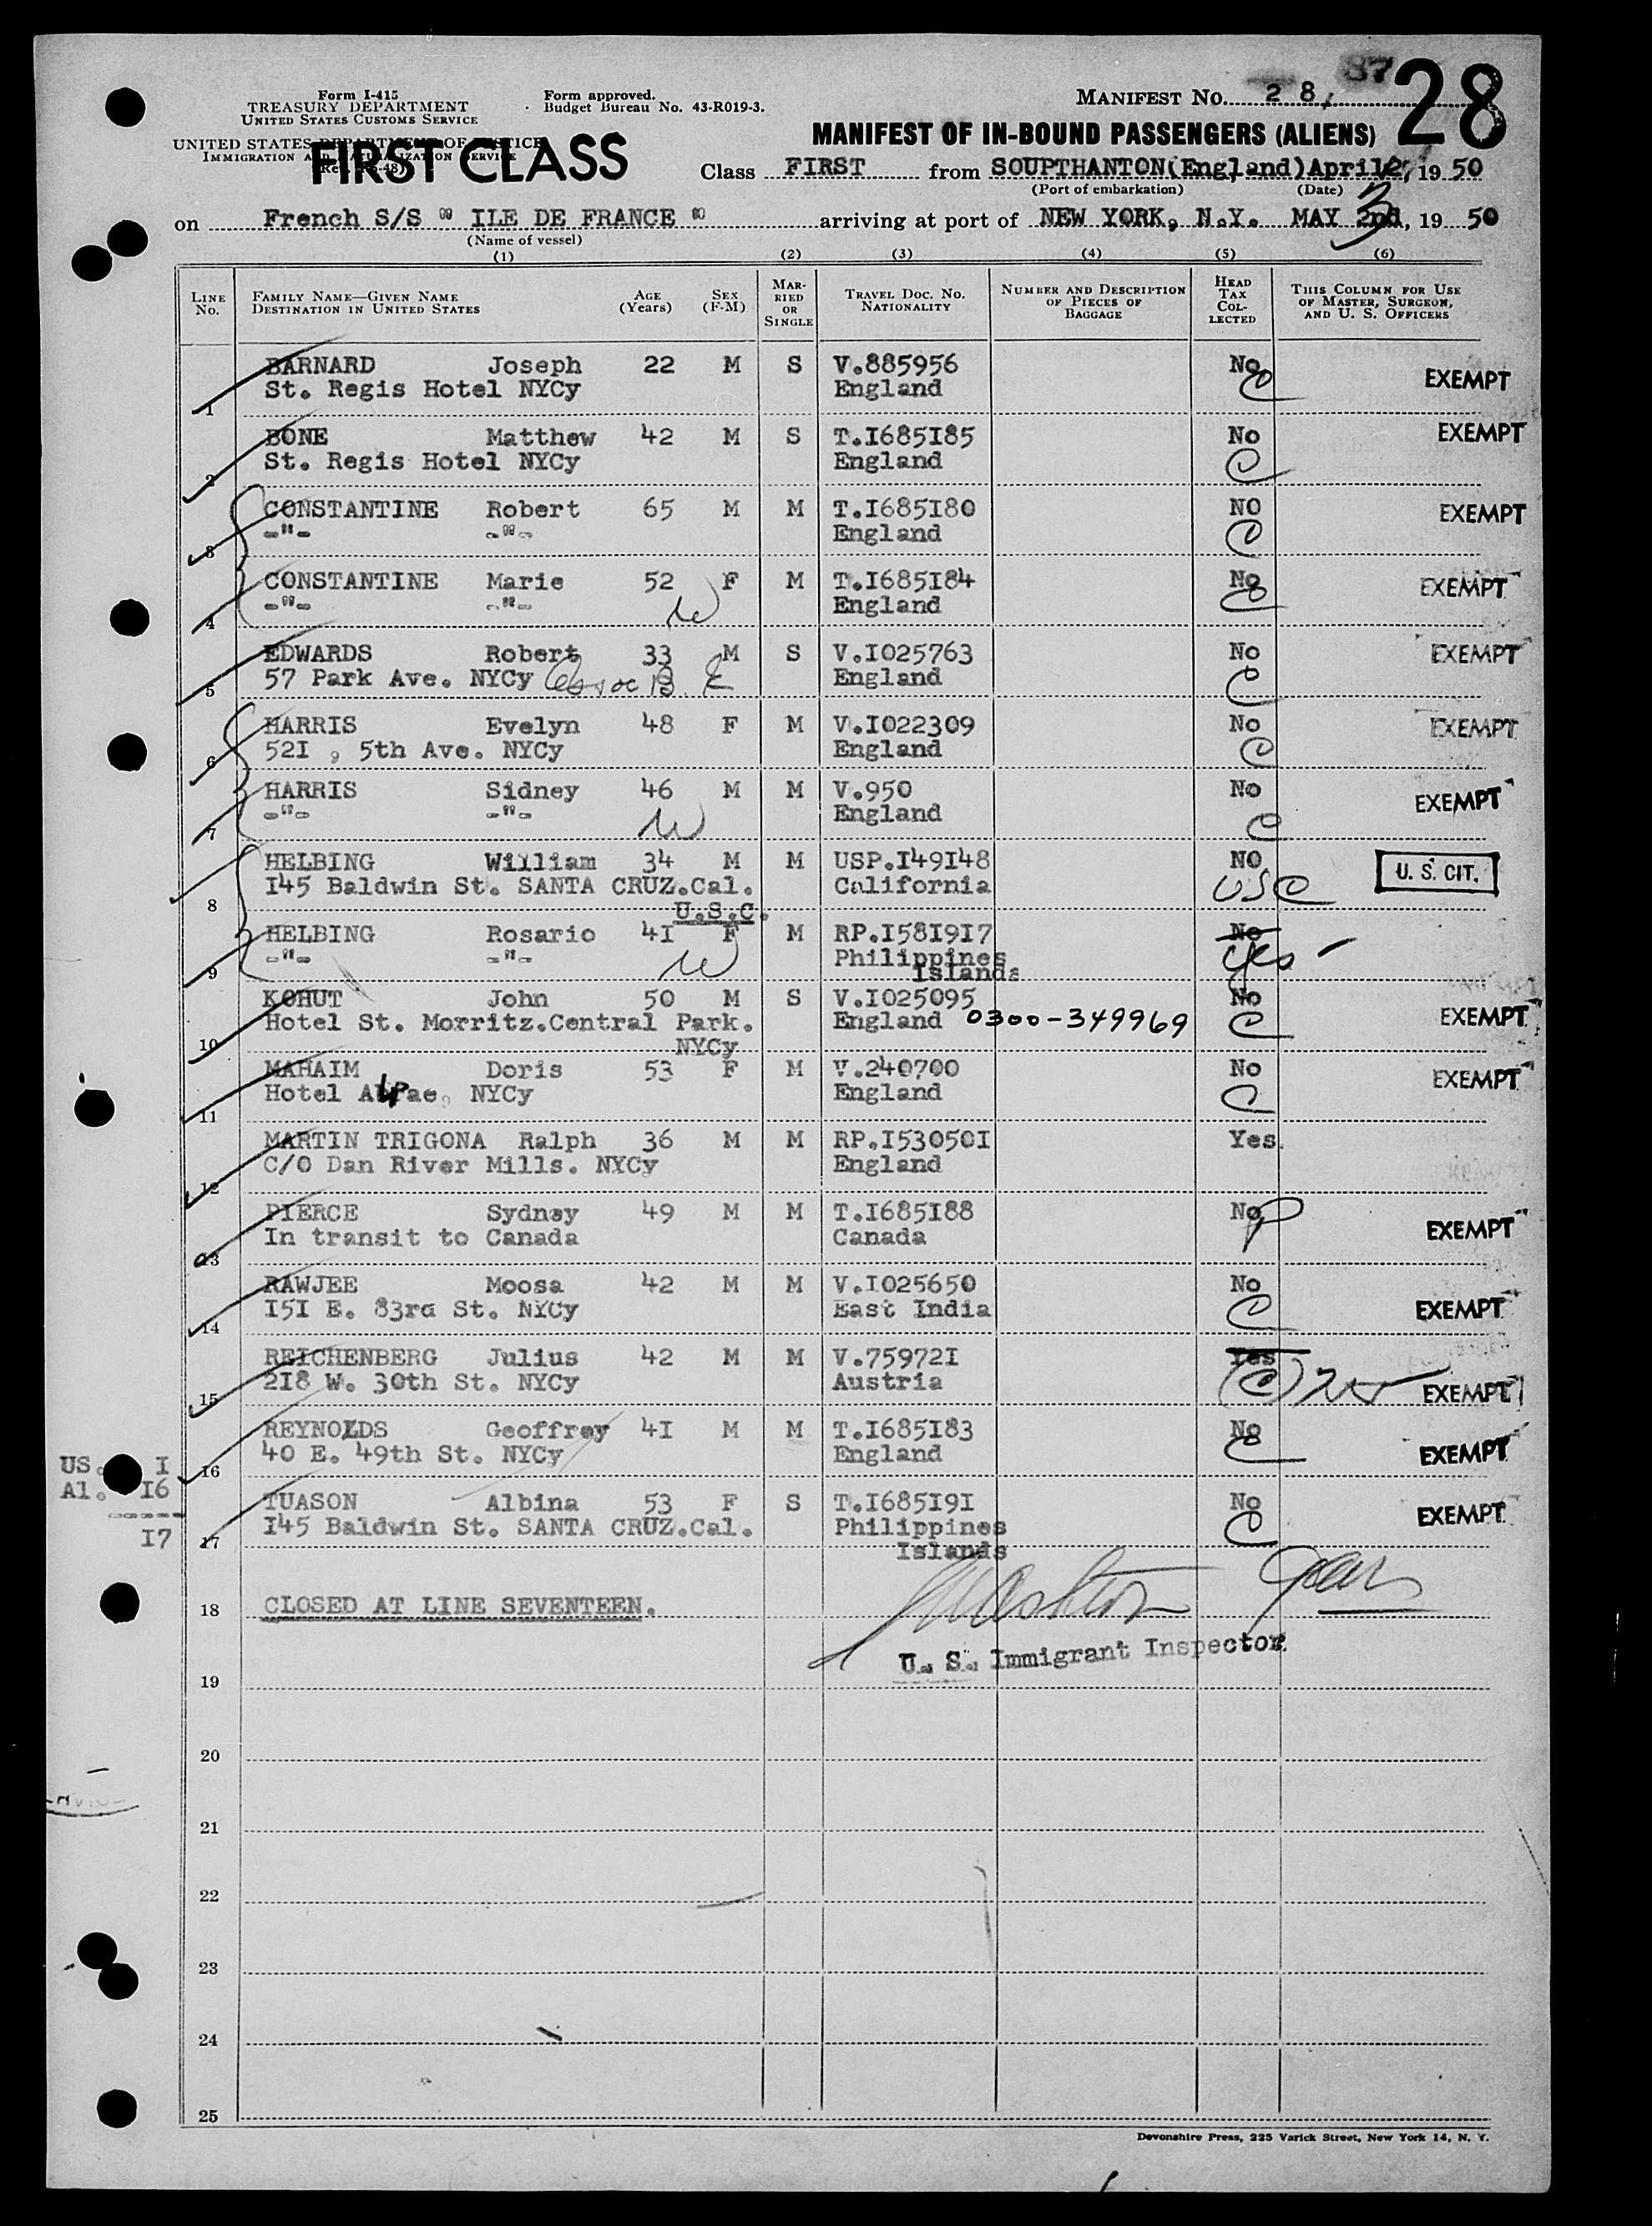 Form I-415
TREASURY DEPARTMENT
UNITED STATES CUSTOMS SERVICE
Form approved.
Budget Bureau No. 43-R019-3.
MANIFEST NO. 28,
28
UNITED STATES DEPARTMENT OF JUSTICE
IMMIGRATION AND NATURALIZATION SERVICE
FIRST CLASS
MANIFEST OF IN-BOUND PASSENGERS (ALIENS)
Class FIRST from SOUPTHANTON(England) April , 19 50
(Port of embarkation) (Date)
on French S/S " ILE DE FRANCE " arriving at port of NEW YORK, N.Y. MAY 2nd, 19 50
3
(Name of vessel)
(1) (2) (3) (4) (5) (6)
LINE No. FAMILY NAME—GIVEN NAME DESTINATION IN UNITED STATES AGE (Years) SEX (F-M) MARRIED OR SINGLE TRAVEL DOC. NO. NATIONALITY NUMBER AND DESCRIPTION OF PIECES OF BAGGAGE HEAD TAX COLLECTED THIS COLUMN FOR USE OF MASTER, SURGEON, AND U. S. OFFICERS
BARNARD Joseph 22 M S V.885956 No EXEMPT
1 St. Regis Hotel NYCy England C
BONE Matthew 42 M S T.I685I85 No EXEMPT
2 St. Regis Hotel NYCy England C
CONSTANTINE Robert 65 M M T.I685I80 NO EXEMPT
3 -"- -"- England C
CONSTANTINE Marie 52 F M T.I685I84 No EXEMPT
4 -"- -"- W England C
EDWARDS Robert 33 M S V.I025763 No EXEMPT
5 57 Park Ave. NYCy England C
HARRIS Evelyn 48 F M V.I022309 No EXEMPT
6 52I , 5th Ave. NYCy England C
HARRIS Sidney 46 M M V.950 No EXEMPT
7 -"- -"- W England C
HELBING William 34 M M USP.I49I48 NO U. S. CIT.
8 I45 Baldwin St. SANTA CRUZ.Cal. California USC
U.S.C.
HELBING Rosario 4I F M RP.I58I9I7 No
9 -"- -"- W Philippines Yes
Islands
KOHUT John 50 M S V.I025095 No EXEMPT
10 Hotel St. Morritz.Central Park. England 0300-349969 C
NYCy
MAHAIM Doris 53 F M V.240700 No EXEMPT
11 Hotel NYCy England C
MARTIN TRIGONA Ralph 36 M M RP.I53050I Yes.
12 C/O Dan River Mills. NYCy England
PIERCE Sydney 49 M M T.I685I88 No EXEMPT
13 In transit to Canada Canada
RAWJEE Moosa 42 M M V.I025650 No EXEMPT
14 I5I E. 83rd St. NYCy East India C
REICHENBERG Julius 42 M M V.75972I Yes
15 2I8 W. 30th St. NYCy Austria (C) EXEMPT
REYNOLDS Geoffrey 4I M M T.I685I83 No EXEMPT
16 40 E. 49th St. NYCy England C
US. I
Al. I6
I7
TUASON Albina 53 F S T.I685I9I No EXEMPT
17 I45 Baldwin St. SANTA CRUZ.Cal. Philippines C
Islands
18 CLOSED AT LINE SEVENTEEN.
U. S. Immigrant Inspector
19
20
21
22
23
24
25
Devonshire Press, 225 Varick Street, New York 14, N. Y.